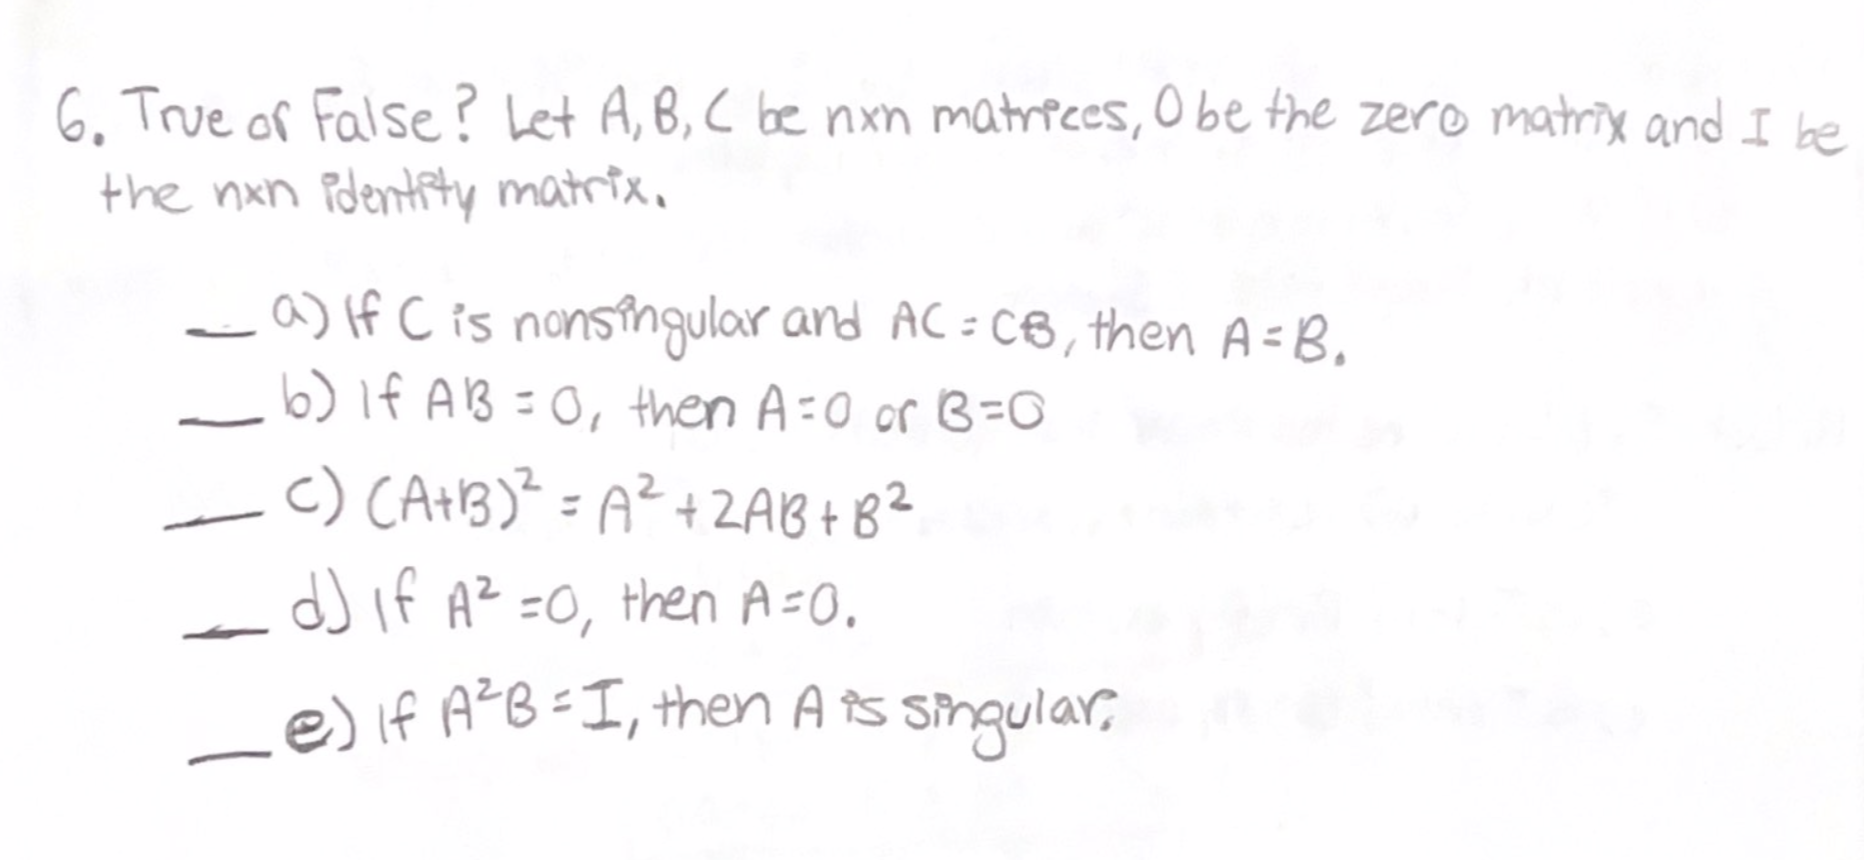 6. True or False? Let A, B, C be nxn matrices, O be the zero matrix and I be
the nxn identity matrix.
__ a) If C is nonsingular and AC = CB, then A = B.
__ b) If AB = O, then A = O or B = O
__ c) (A+B)² = A² + 2AB + B²
__ d) If A² = O, then A = O.
__ e) If A²B = I, then A is singular.